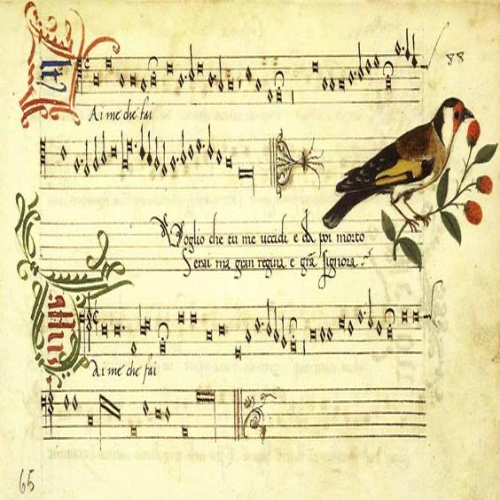 88
Ai me che fai
Voglio che tu me uccidi e di poi morto
Serai ma gran regina e grã signora
Ai me che fai
65